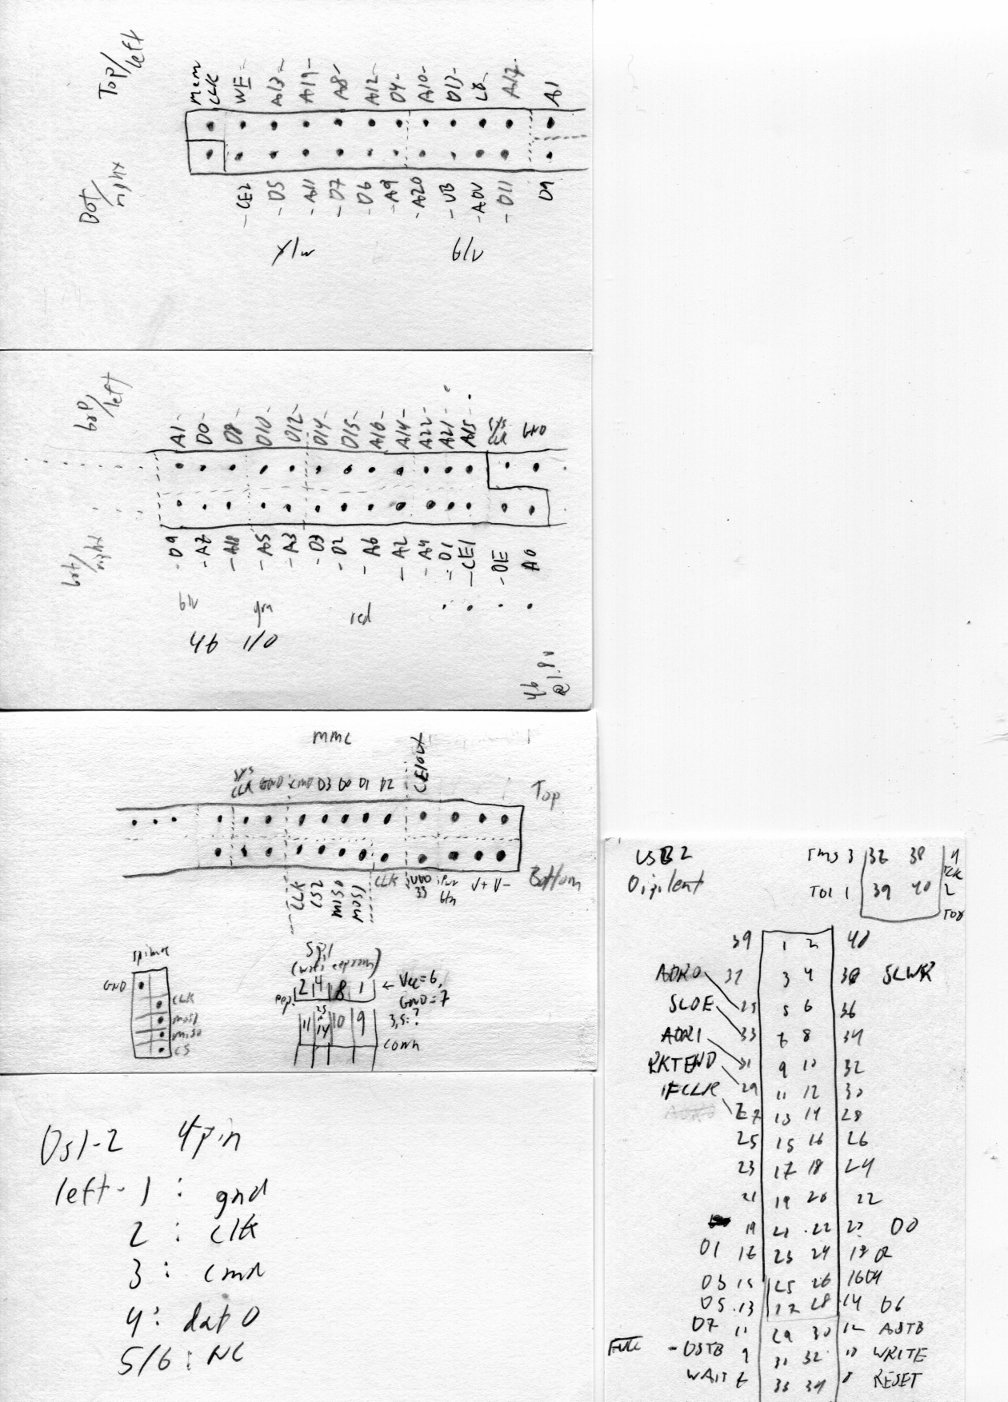 Top/
left
Mem
CLK
WE
A13
A19
A8
A12
D4
A10
D13
LB
A17
A1
Bot/
right
CE2
D5
A11
D7
D6
A9
A20
UB
ADV
D11
D9
y/w
b/v
top/
left
A1
D0
D8
D10
D12
D14
D15
A16
A14
A22
A21
A15
SYS
CLK
GND
bot/
right
D9
A7
A18
A5
A3
D3
D2
A6
A2
A4
D1
CE1
OE
A0
blu
grn
red
46 I/O
46
@1.8v
MMC
SYS
CLK
GND
CMD
D3
D0
D1
D2
Top
Bottom
CLK
CS2
MISO
MOSI
CLK
VDD
33
Pwr
btn
V+
V-
SPI
2 4 8 1
← Vcc=6,
GND=7
3,5:?
11
10
9
conn
GND
CLK
MOSI
MISO
CS
DS1-2 4pin
left- 1 : gnd
2 : clk
3 : cmd
4 : dat0
5/6 : NC
USB2
Digilent
TMS 3 37 38 4
TDI 1 39 40 2
39 1 2 40
ADR0 37 3 4 38 SLWR
SLOE 35 5 6 36
ADR1 33 7 8 34
PKTEND 31 9 10 32
IFCLK 29 11 12 30
27 13 14 28
25 15 16 26
23 17 18 24
21 19 20 22
19 21 22 20 D0
D1 17 23 24 18 D2
D3 15 25 26 16 D4
D5 13 27 28 14 D6
D7 11 29 30 12 ASTB
DSTB 9 31 32 10 WRITE
WAIT 7 33 34 8 RESET